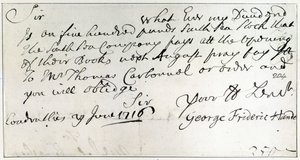 Sir
What Ever my Dividend
Is on five hundred pounds South Sea Stock that
The South Sea Company pays at the opening
of their Books next August pray pay
To Mr Thomas Carbonnel or order and
you will oblidge
Sir
Your
London this 29 June 1716
George Frideric Handel